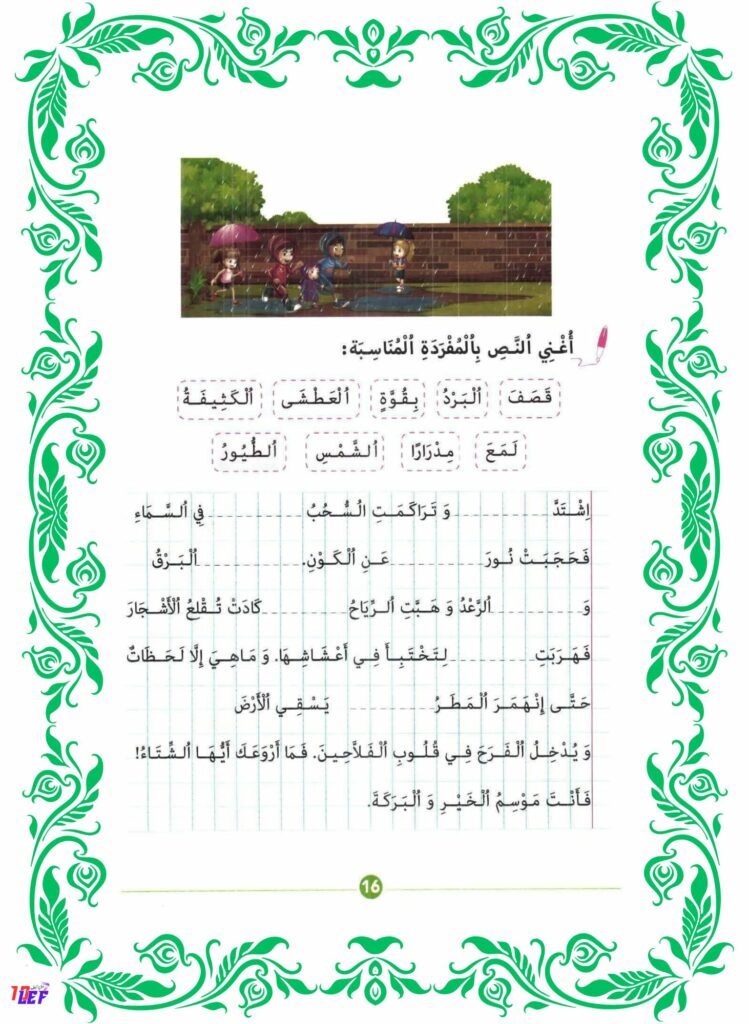 أُغْنِي ٱلنَّصِ بِٱلْمُفْرَدَةِ ٱلْمُنَاسِبَة:
قَصَفَ ٱلْبَرْدُ بِقُوَّةٍ ٱلْعَطْشَى ٱلْكَثِيفَةُ
لَمَعَ مِدْرَارًا ٱلشَّمْسِ ٱلطُّيُورُ
اِشْتَدَّ وَ تَرَاكَمَتِ السُّحُبُ فِي ٱلسَّمَاءِ
فَحَجَبَتْ نُورَ عَنِ ٱلْكَوْنِ. ٱلْبَرْقُ
وَ ٱلرَّعْدُ وَ هَبَّتِ ٱلرِّيَاحُ كَادَتْ تُقْلِعُ ٱلْأَشْجَارَ
فَهَرَبَتِ لِتَخْتَبِأَ فِي أَعْشَاشِهَا. وَ مَاهِيَ إِلَّا لَحَظَاتٌ
حَتَّى إِنْهَمَرَ ٱلْمَطَرُ يَسْقِي ٱلْأَرْضَ
وَ يُدْخِلُ ٱلْفَرَحَ فِي قُلُوبِ ٱلْفَلاَّحِينَ. فَمَا أَرْوَعَكَ أَيُّهَا ٱلشِّتَاءُ!
فَأَنْتَ مَوْسِمُ ٱلْخَيْرِ وَ ٱلْبَرَكَةَ.
16